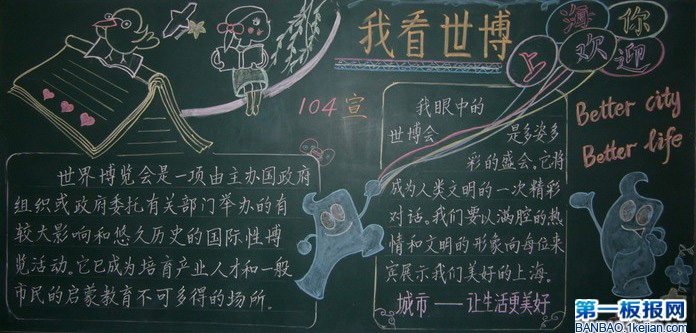 我看世博
上海欢迎你
104宣
Better city
Better life
世界博览会是一项由主办国政府
组织或政府委托有关部门举办的有
较大影响和悠久历史的国际性博
览活动。它已成为培育产业人才和一般
市民的启蒙教育不可多得的场所。
我眼中的
世博会 是多姿多
彩的盛会。它将
成为人类文明的一次精彩
对话。我们要以满腔的热
情和文明的形象向每位来
宾展示我们美好的上海。
城市——让生活更美好
第一板报网
BANBAO.1kejian.com